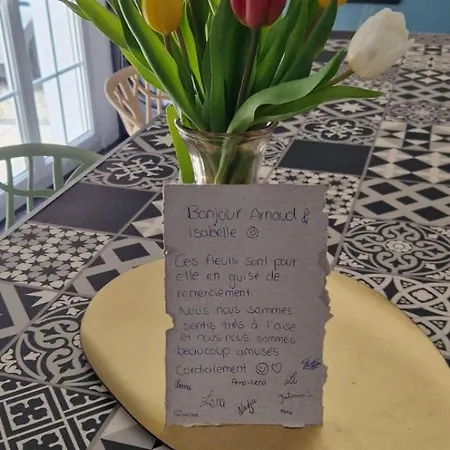 Bonjour Arnaud &
Isabelle ☺
Ces fleurs sont pour
elle en guise de
remerciement
Nous nous sommes
sentis très à l'aise
et nous nous sommes
beaucoup amusés
Cordialement ☺♡
Lena
Nadja